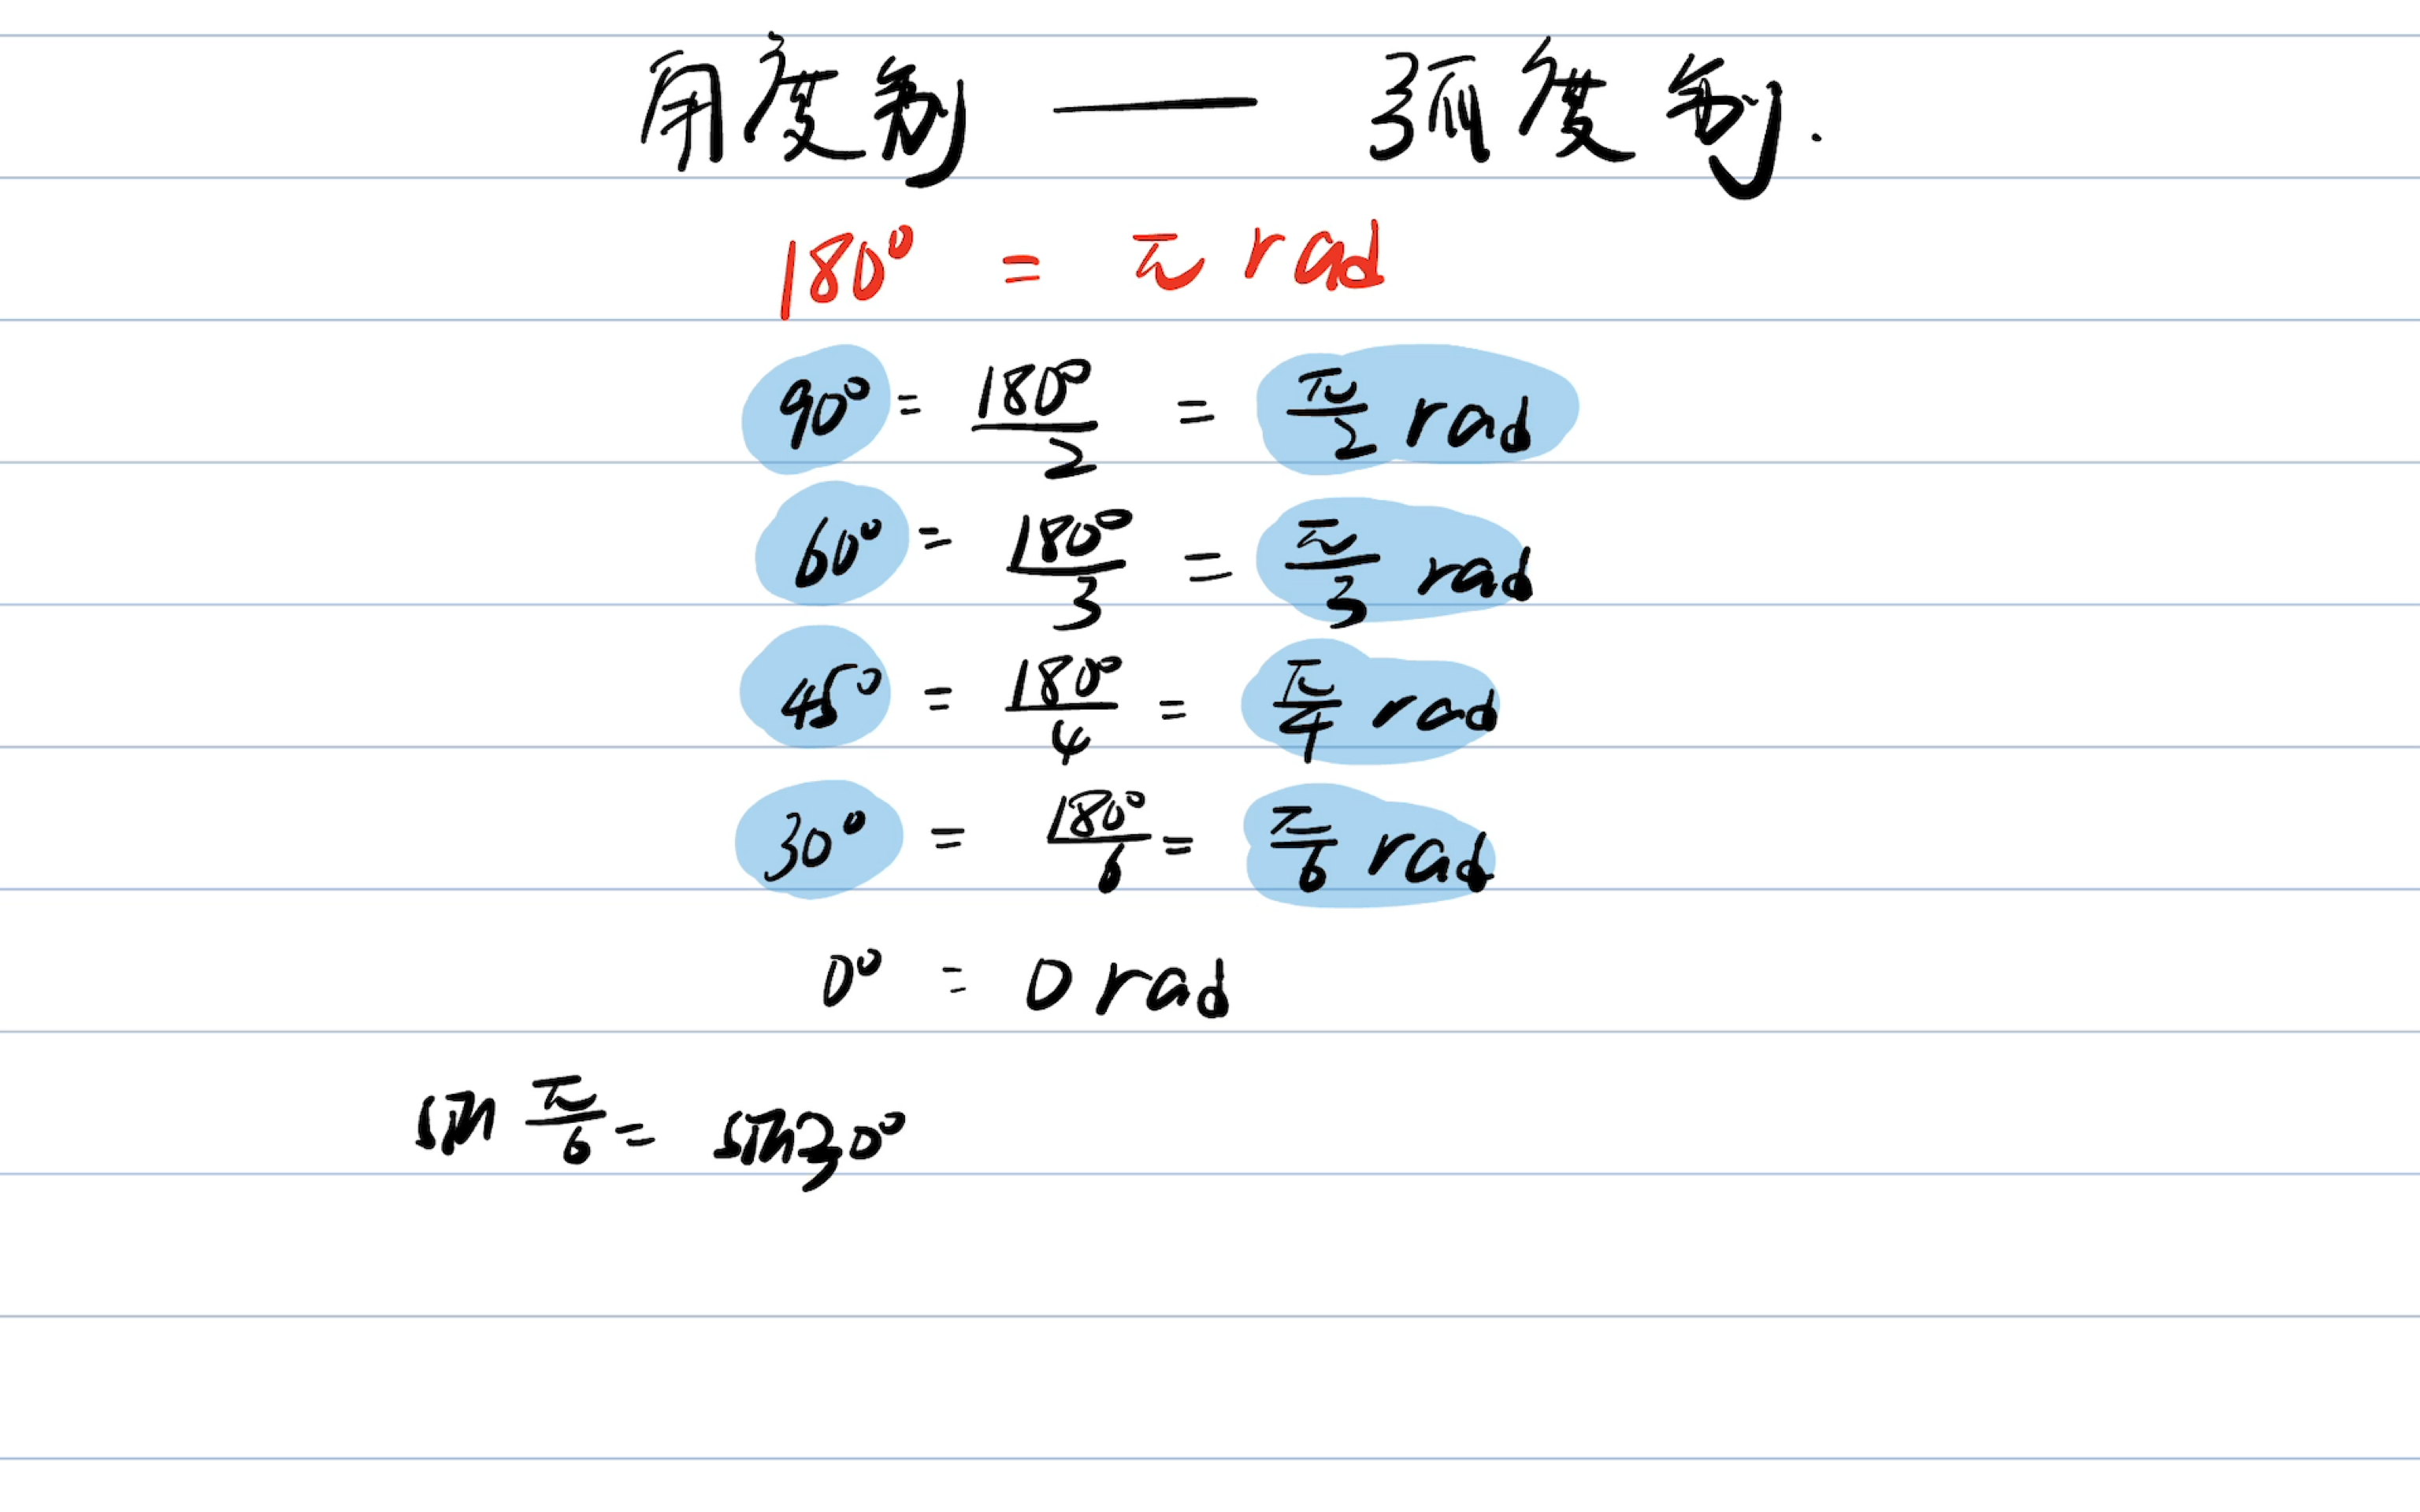 角度制 —— 弧度制.
180° = π rad
90° = 180°/2 = π/2 rad
60° = 180°/3 = π/3 rad
45° = 180°/4 = π/4 rad
30° = 180°/6 = π/6 rad
0° = 0 rad
sin π/6 = sin30°